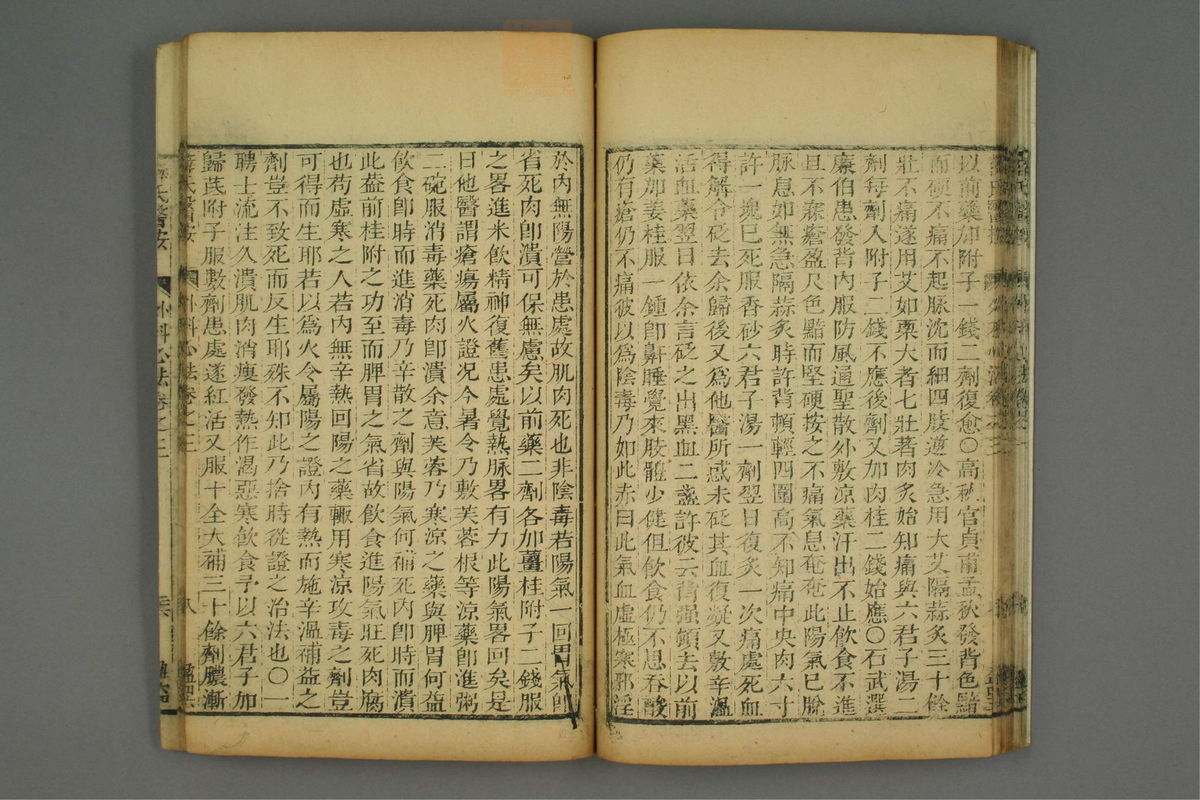 以前藥加附子一錢二劑復愈○高秋官貞甫孟秋發背色黯
而硬不痛不起脉沈而細四肢逆冷急用大艾隔蒜炙三十餘
壯不痛遂用艾如栗大者七壯著肉炙始知痛與六君子湯二
劑每劑入附子二錢不應後劑又加肉桂二錢始應○石武選
廉伯患發背內服防風通聖散外敷凉藥汗出不止飲食不進
且不寐瘡盈尺色黯而堅硬按之不痛氣息奄奄此陽氣已脫
脉息如無急隔蒜炙時許背頓輕四圍高不知痛中央肉六寸
許一塊已死服香砂六君子湯一劑翌日復炙一次痛處死血
得解令砭去余歸後又爲他醫所惑未砭其血復凝又敷辛溫
活血藥翌日依余言砭之出黑血二盞許彼云背强頓去以前
藥加姜桂服一鍾卽鼾睡覺來肢體少健但飲食仍不思吞酸
仍有瘡仍不痛彼以爲陰毒乃如此赤曰此氣血虛極寒邪淫
於內無陽營於患處故肌肉死也非陰毒若陽氣一回胃氣卽
省死肉卽潰可保無慮矣以前藥二劑各加薑桂附子二錢服
之畧進米飲精神復舊患處覺熱脉畧有力此陽氣畧回矣是
日他醫謂瘡瘍屬火證况今暑令乃敷芙蓉根等凉藥卽進粥
二碗服消毒藥死肉卽潰余意芙蓉乃寒凉之藥與脾胃何益
飲食卽時而進消毒乃辛散之劑與陽氣何補死肉卽時而潰
此葢前桂附之功至而脾胃之氣省故飲食進陽氣旺死肉腐
也苟虛寒之人若內無辛熱回陽之藥輙用寒凉攻毒之劑豈
可得而生耶若以爲火令屬陽之證內有熱而施辛溫補益之
劑豈不致死而反生耶殊不知此乃捨時從證之治法也○一
聘士流注久潰肌肉消瘦發熱作渴惡寒飲食予以六君子加
歸芪附子服數劑患處遂紅活又服十全大補三十餘劑膿漸
薛氏醫按 外科心法卷之三